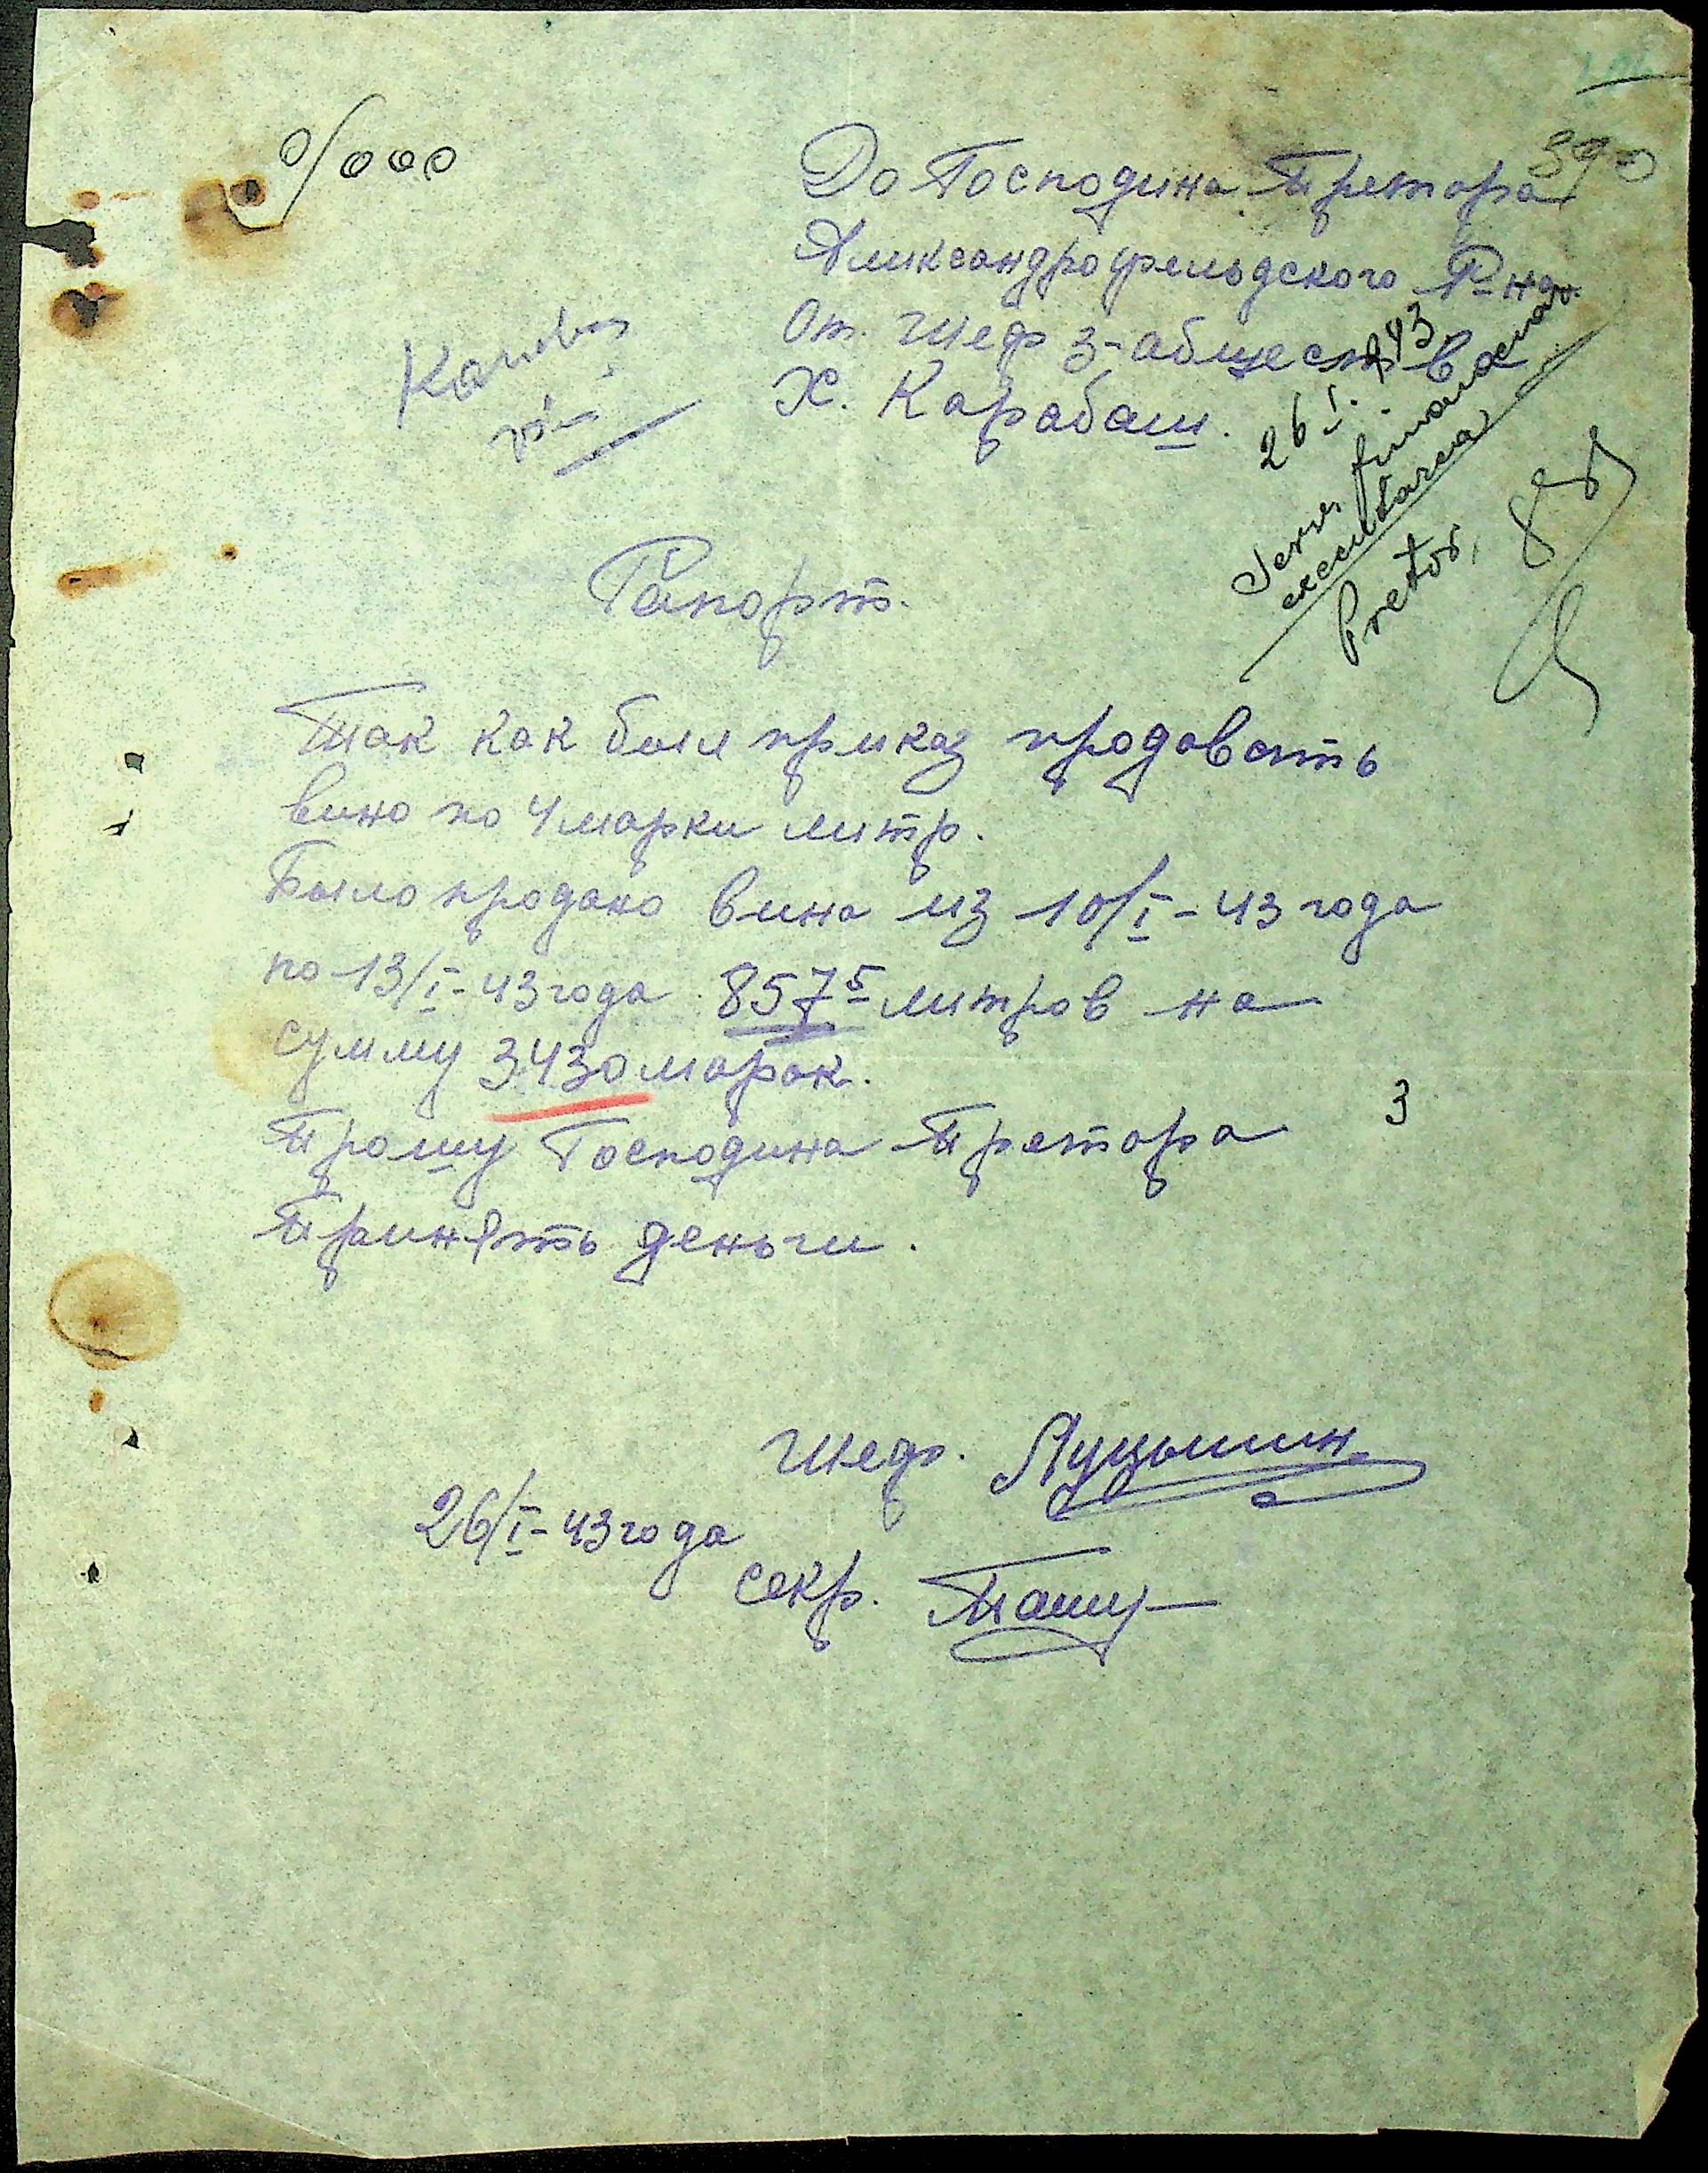 0/000
390
До Господина Претора
Александрофельдского Р-на.
От. Шеф 3-общества
Х. Карабаш.
26 I. 943
Serv. financiar
executarea
Pretor,
Рапорт.
Так как был приказ продовать
вино по 4 марки литр.
Было продано вина из 10/I-43 года
по 13/I-43 года 857⁵ литров на
сумму 3430 марок.
Прошу Господина Претора
3
Принять деньги.
Шеф. Луцышин
26/I-43 года
секр.